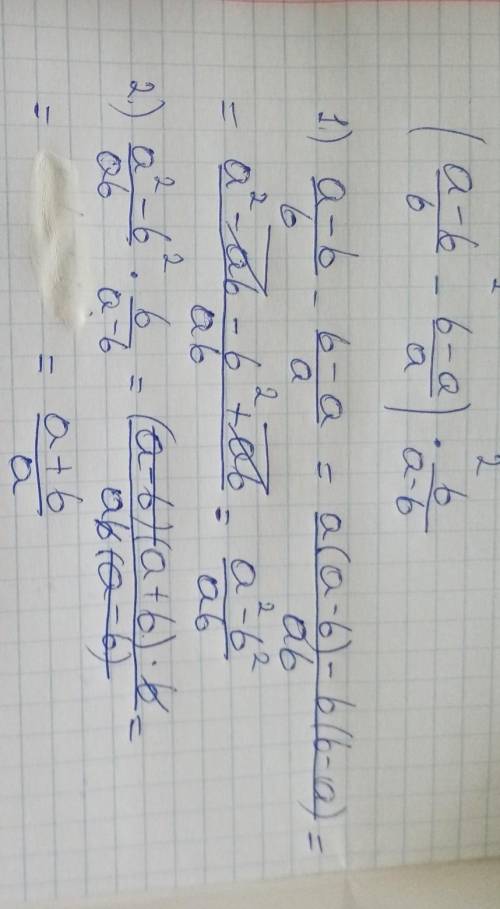 ( (a-b)/b - (b-a)/a ) · b/(a-b)
2 2
1) (a-b)/b - (b-a)/a = (a(a-b) - b(b-a))/ab =
= (a² - ab - b² + ab)/ab = (a² - b²)/ab
2) (a² - b²)/ab · b/(a-b) = ((a-b)(a+b)·b)/(ab(a-b)) =
= = (a+b)/a